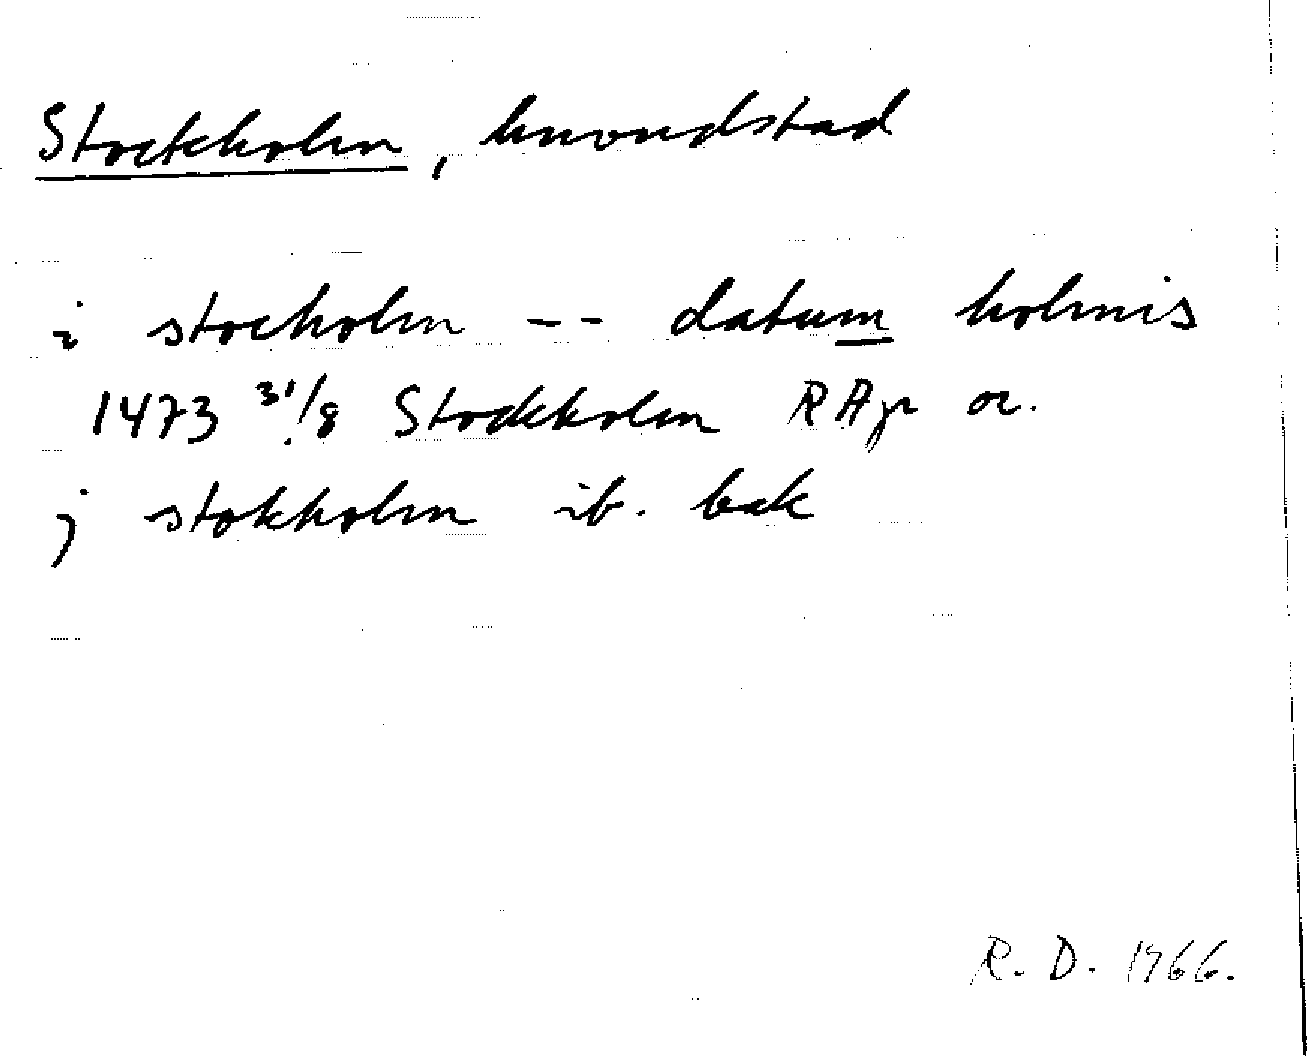 Stockholm, huvudstad
i stocholm -- datum holmis
1473 31/8 Stockholm RAp or.
j stokholm ib. bak
R. D. 1966.